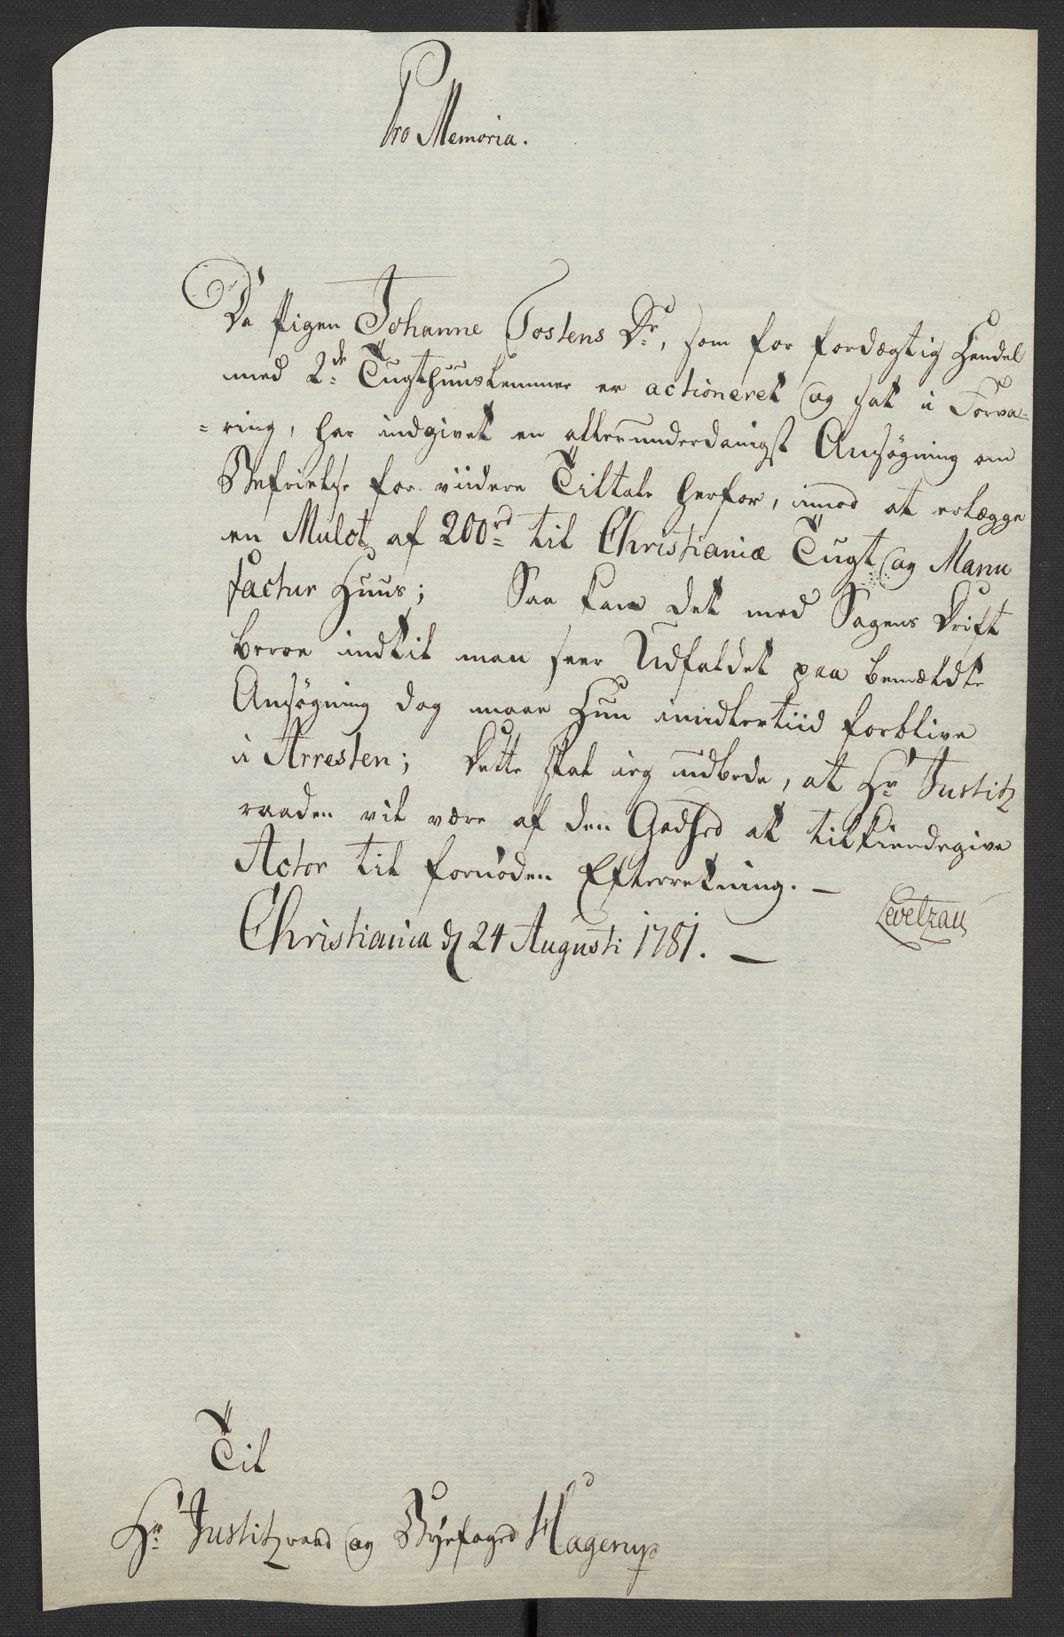 Pro Memoria.
Da Pigen Johanne Tostens Dr, som for fordægtig Handel
med 2de Tugthuuslemmer er actioneret og sat i Forva-
-ring, har indgivet en allerunderdanigst Ansøgning om
Befrielse for viidere Tiltale herfor, imod at erlægge
en Mulct af 200rd til Christianiæ Tugt og Manu
factur Huus; Saa kan det med Sagens Drift
beroe indtil man seer Udfaldet paa bemældte
Ansøgning dog maae Hun imidlertiid forblive
i Arresten; Dette skal ieg udbede, at Hr Justitz
raaden vil være af den Godhed at tilkiendegive
Actor til fornøden Efterretning. –
Levetzau
Christiania d 24 Augusti 1781. –
Til
Hr Justitzraad og Byefoged Hagerup